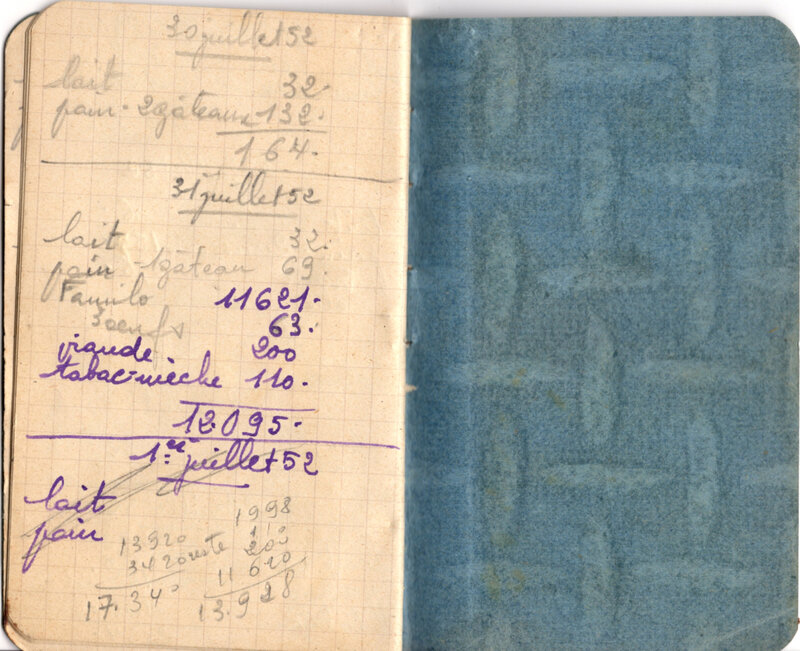 30 juillet 52
lait 32.
pain - 2 gâteaux 132.
164.
31 juillet 52
lait 32.
pain 1 gâteau 69.
Familo 11621.
3 oeufs 63.
viande 200
tabac-mèche 110.
12095.
1er juillet 52
lait
pain
1998
13920 1,10
3420 reste 200
11620
17.340 13.928